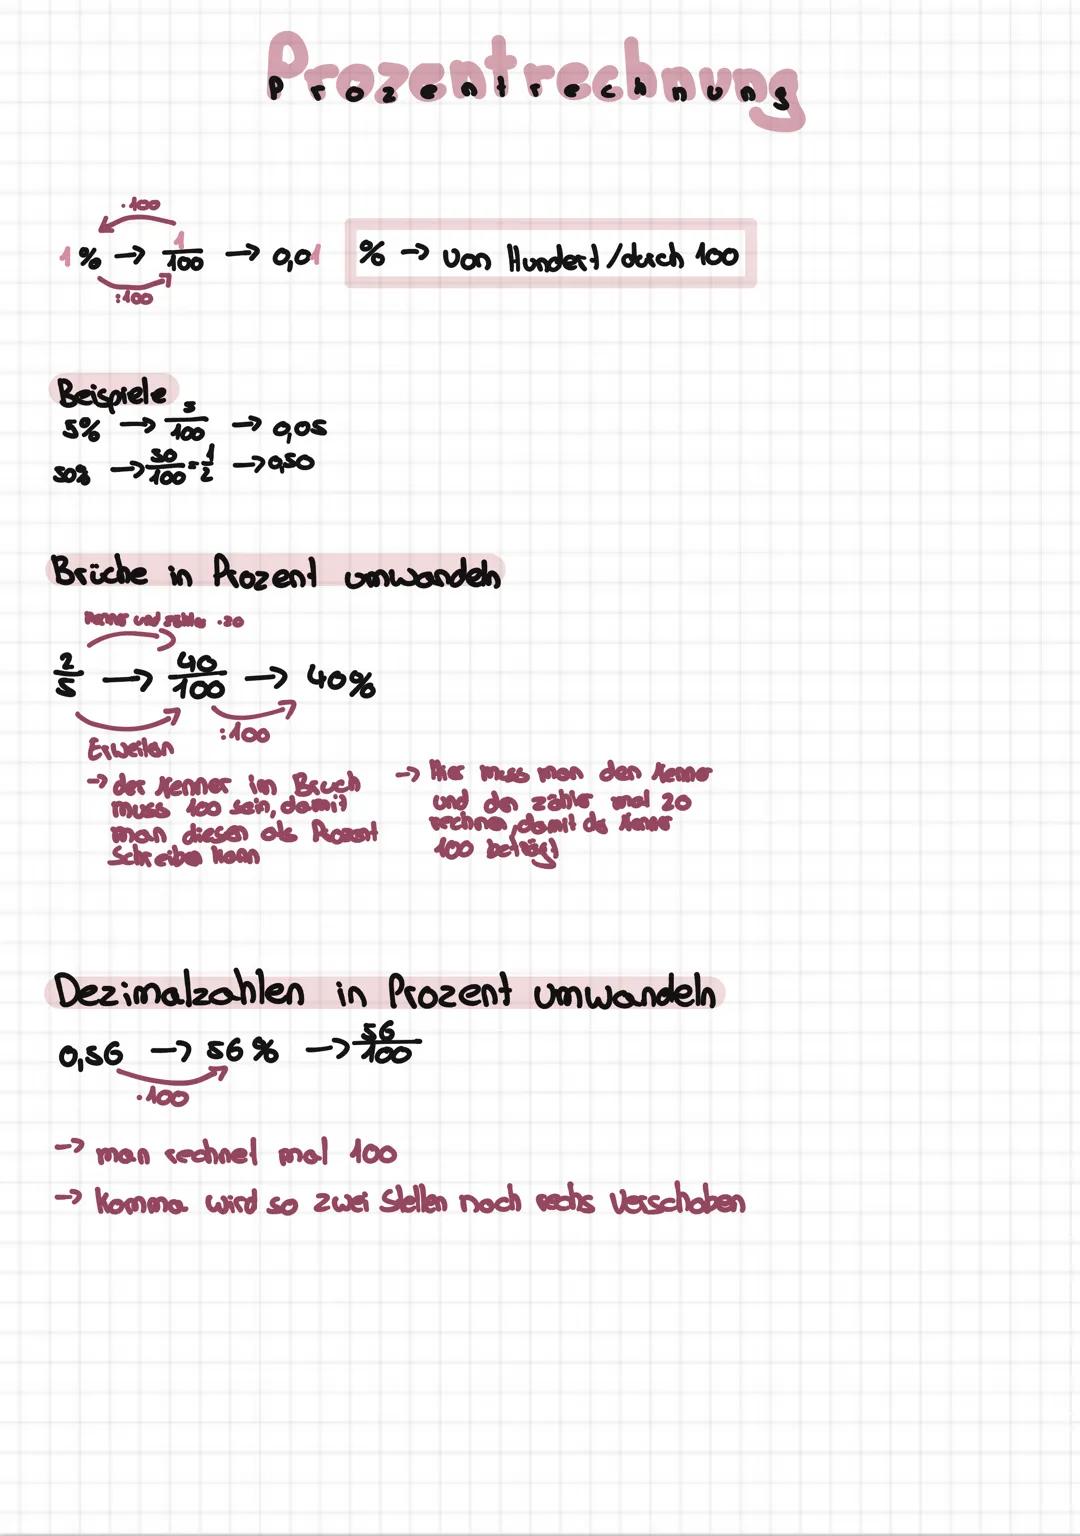 Prozentrechnung
Prozentrechnung
·100
1% → 1/100 → 0,01
:100
% → von Hundert/durch 100
Beispiele
5% → 5/100 → 0,05
50% → 50/100 = 1/2 → 0,50
Brüche in Prozent umwandeln
Nenner und Zähler ·20
2/5 → 40/100 → 40%
:100
→ der Nenner im Bruch
muss 100 sein, damit
man diesen als Prozent
schreiben kann
→ Hier muss man den Nenner
und den Zähler mal 20
rechnen, damit der Nenner
100 beträgt
Dezimalzahlen in Prozent umwandeln
0,56 → 56% → 56/100
·100
→ man rechnet mal 100
→ Komma wird so zwei Stellen nach rechs verschoben